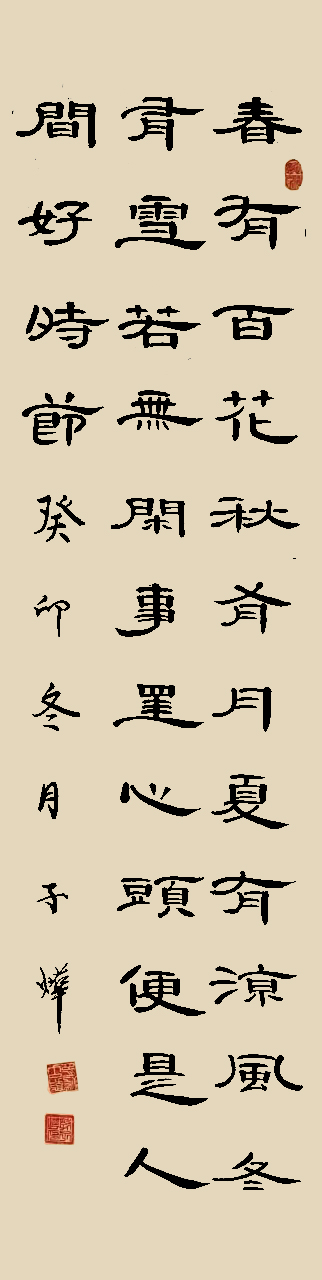 春有百花秋有月夏有涼風冬
有雪若無閑事罣心頭便是人
間好時節癸卯冬月子燁